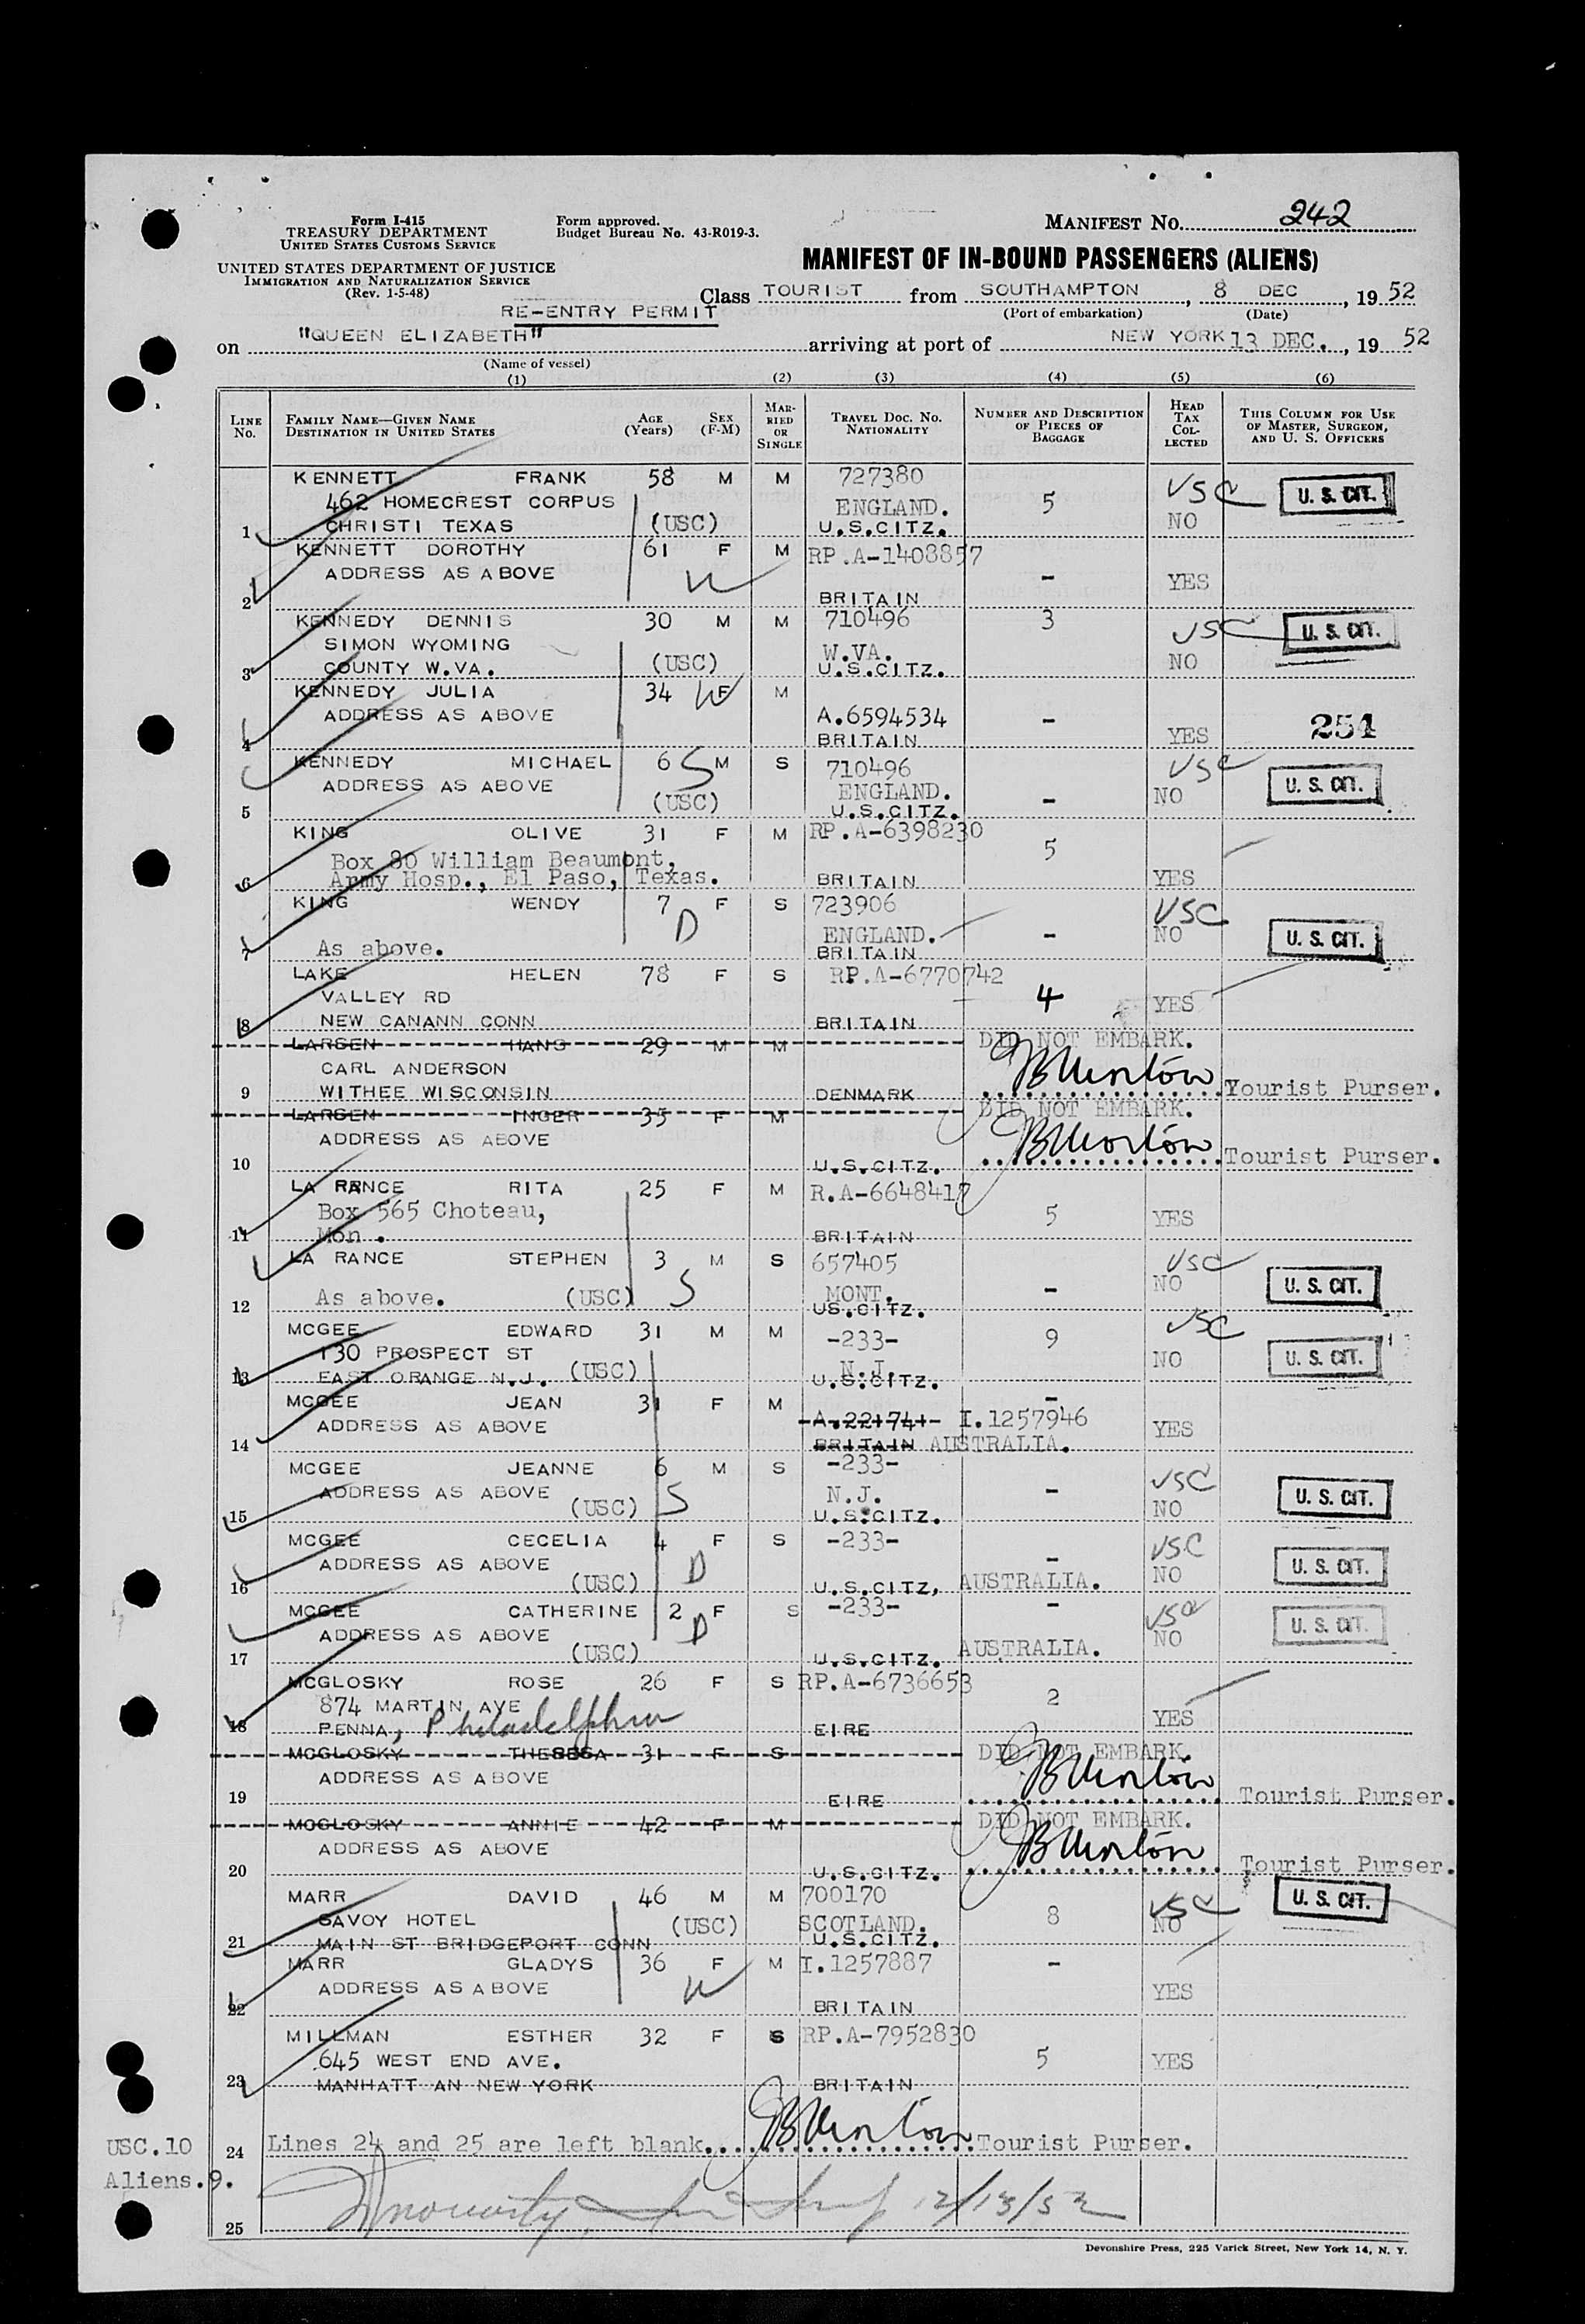 Form I-415
TREASURY DEPARTMENT
UNITED STATES CUSTOMS SERVICE
Form approved.
Budget Bureau No. 43-R019-3.
MANIFEST No. 242
UNITED STATES DEPARTMENT OF JUSTICE
IMMIGRATION AND NATURALIZATION SERVICE
(Rev. 1-5-48)
MANIFEST OF IN-BOUND PASSENGERS (ALIENS)
Class TOURIST from SOUTHAMPTON, 8 DEC, 19 52
(Port of embarkation) (Date)
RE-ENTRY PERMIT
on "QUEEN ELIZABETH" arriving at port of NEW YORK 13 DEC., 19 52
(Name of vessel)
(1) (2) (3) (4) (5) (6)
LINE No. FAMILY NAME—GIVEN NAME DESTINATION IN UNITED STATES AGE (Years) SEX (F-M) MARRIED OR SINGLE TRAVEL DOC. NO. NATIONALITY NUMBER AND DESCRIPTION OF PIECES OF BAGGAGE HEAD TAX COLLECTED THIS COLUMN FOR USE OF MASTER, SURGEON, AND U. S. OFFICERS
KENNETT FRANK 58 M M 727380 USC U. S. CIT.
462 HOMECREST CORPUS ENGLAND. 5
1 CHRISTI TEXAS (USC) U.S.CITZ. NO
KENNETT DOROTHY 61 F M RP.A-1408857
ADDRESS AS ABOVE W - YES
2 BRITAIN
KENNEDY DENNIS 30 M M 710496 3 USC U. S. CIT.
SIMON WYOMING W.VA.
3 COUNTY W.VA. (USC) U.S.CITZ. NO
KENNEDY JULIA 34 W F M
ADDRESS AS ABOVE A.6594534 - 254
4 BRITAIN YES
KENNEDY MICHAEL 6 S M S 710496 USC
ADDRESS AS ABOVE ENGLAND. U. S. CIT.
5 (USC) U.S.CITZ. - NO
KING OLIVE 31 F M RP.A-6398230
Box 80 William Beaumont, 5
6 Army Hosp., El Paso, Texas. BRITAIN YES
KING WENDY 7 F S 723906 USC
D ENGLAND. - NO U. S. CIT.
7 As above. BRITAIN
LAKE HELEN 78 F S RP.A-6770742
VALLEY RD 4 YES
8 NEW CANANN CONN BRITAIN
LARSEN HANS 29 M M DID NOT EMBARK.
CARL ANDERSON
9 WITHEE WISCONSIN DENMARK Tourist Purser.
LARSEN INGER 35 F M DID NOT EMBARK.
ADDRESS AS ABOVE
10 U.S.CITZ. Tourist Purser.
LA RANCE RITA 25 F M R.A-6648417
Box 565 Choteau, 5 YES
11 Mon. BRITAIN
LA RANCE STEPHEN 3 M S 657405 USC
12 As above. (USC) S MONT. - NO U. S. CIT.
US.CITZ.
MCGEE EDWARD 31 M M -233- 9 USC
130 PROSPECT ST N.J. NO U. S. CIT.
13 EAST ORANGE N.J. (USC) U.S.CITZ.
MCGEE JEAN 31 F M -
ADDRESS AS ABOVE A.221741 I.1257946 YES
14 BRITAIN AUSTRALIA.
MCGEE JEANNE 6 M S -233- USC
ADDRESS AS ABOVE S N.J. - U. S. CIT.
15 (USC) U.S.CITZ. NO
MCGEE CECELIA 4 F S -233- USC
ADDRESS AS ABOVE D - U. S. CIT.
16 (USC) U.S.CITZ, AUSTRALIA. NO
MCGEE CATHERINE 2 F S -233- - USC
ADDRESS AS ABOVE D NO U. S. CIT.
17 (USC) U.S.CITZ. AUSTRALIA.
MCGLOSKY ROSE 26 F S RP.A-6736653
874 MARTIN AVE 2
18 PENNA, Philadelphia EIRE YES
MCGLOSKY THERESA 31 F S DID NOT EMBARK.
ADDRESS AS ABOVE
19 EIRE Tourist Purser.
MCGLOSKY ANNIE 42 F M DID NOT EMBARK.
ADDRESS AS ABOVE
20 U.S.CITZ. Tourist Purser.
MARR DAVID 46 M M 700170 USC U. S. CIT.
SAVOY HOTEL (USC) SCOTLAND. 8 NO
21 MAIN ST BRIDGEPORT CONN U.S.CITZ.
MARR GLADYS 36 F M I.1257887 -
ADDRESS AS ABOVE W YES
22 BRITAIN
MILLMAN ESTHER 32 F S RP.A-7952830
645 WEST END AVE. 5 YES
23 MANHATTAN NEW YORK BRITAIN
USC.10
24 Lines 24 and 25 are left blank. Tourist Purser.
Aliens.9.
12/13/52
25
Devonshire Press, 225 Varick Street, New York 14, N. Y.